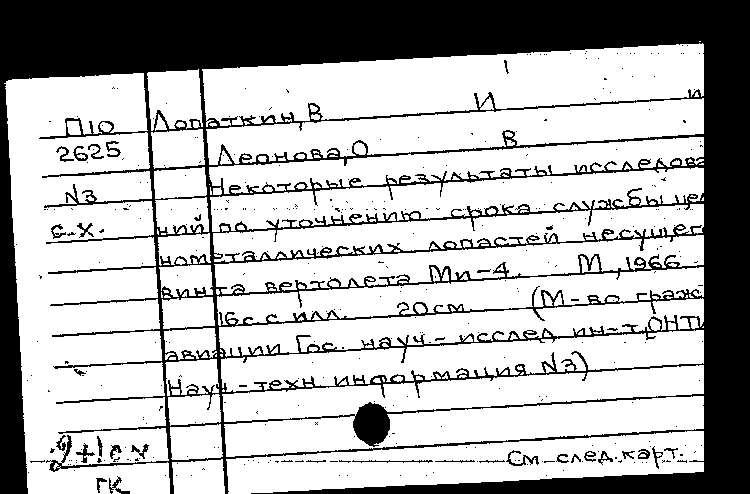 П10 Лопаткин, В И и
2625 Леонова, О В
N3 Некоторые результаты исследова
с.х. ний по уточнению срока службы цел
нометаллических лопастей несущего
винта вертолета Ми-4. М, 1966
16с. с илл. 20см. (М-во граж
авиации Гос. науч-исслед ин-т, ОНТИ
Науч-техн информация N3)
См след. карт.
ГК